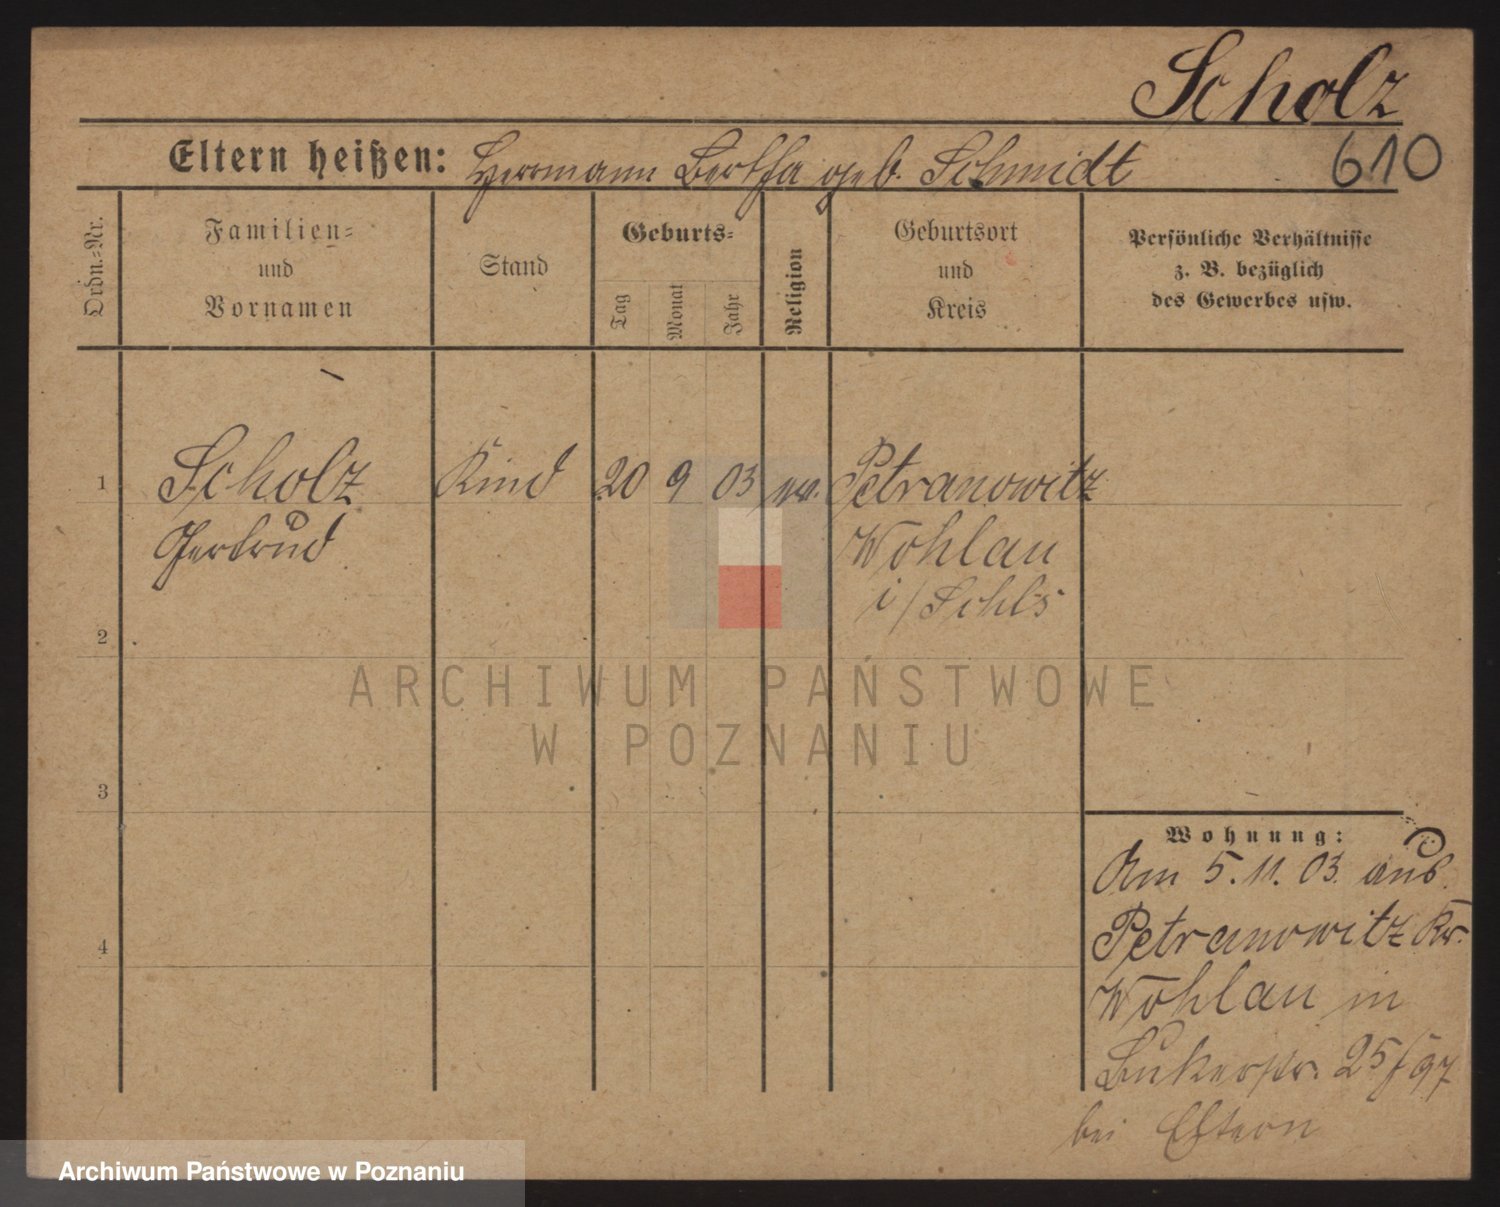 Scholz
Eltern heißen: Hermann Bertha geb. Schmidt 610
Ordn.-Nr.
Familien-
und
Vornamen
Stand
Geburts-
Tag
Monat
Jahr
Religion
Geburtsort
und
Kreis
Persönliche Verhältnisse
z. B. bezüglich
des Gewerbes usw.
1 Scholz Kind 20 9 03 ev. Petranowitz
Gertrud
Wohlau
i/Schls
2
3
4
Wohnung:
Am 5.11.03 aus
Petranowitz Kr.
Wohlau in
25/97
bei Eltern
ARCHIWUM PAŃSTWOWE
W POZNANIU
Archiwum Państwowe w Poznaniu